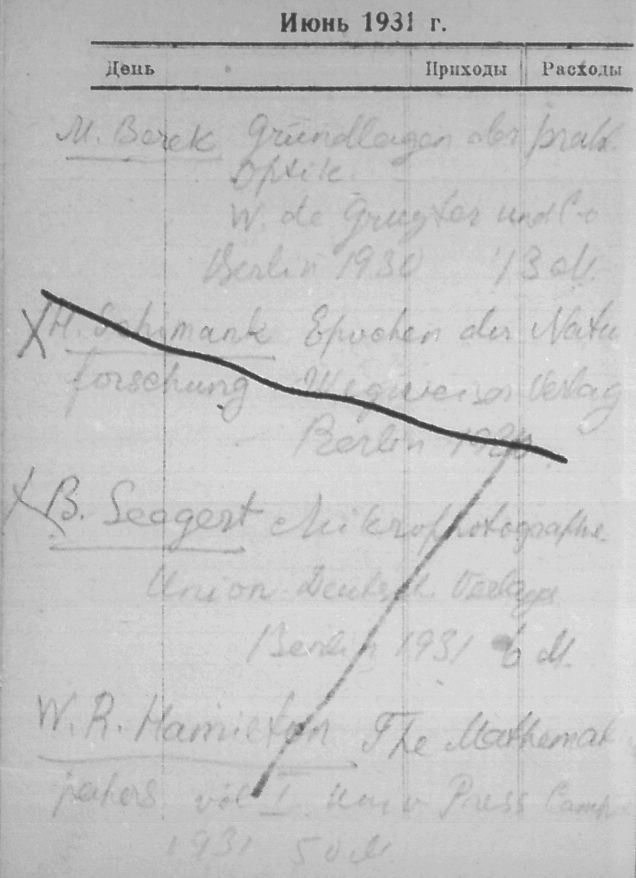 Июнь 1931 г.
День Приходы Расходы
M. Berek Grundlagen der prakt.
Optik.
W. de Gruyter und Co
Berlin 1930 13 M.
H. Schimank Epochen der Natu
forschung Wegweiser Verlag
Berlin
B. Seegert Mikrophotographie
Union Deutsch. Verlags
Berlin 1931 6 M.
W. R. Hamilton The Mathemat
papers vol I. Univ Press Camb
1931 50 M.